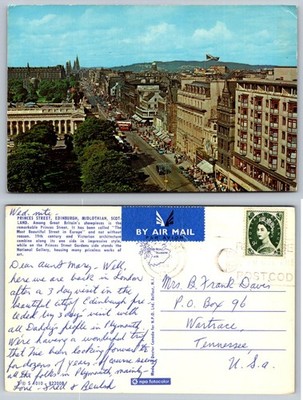 Wed. nite.
PRINCES STREET, EDINBURGH, MIDLOTHIAN, SCOT-
LAND. Among Great Britain's
remarkable Princes Street. It has been called "The
Most Beautiful Street in Europe" and not without
reason. 19th century and Victorian architecture
combine along its one side in impressive style,
while on the Princes Street Gardens side stands the
National Gallery, housing many priceless works of
art.
BY AIR MAIL
PAR AVION
POSTCODE
Dear Aunt Mary - Well,
here we are back in London
after a 3 day visit in the
beautiful city of Edinburgh
ceded by 3 days visit with
all Daddy's people in Plymouth.
Were having a wonderful trip
that I've been looking forward to
for dozens of years. Of course seeing
all the folks in Plymouth, mainly.
Love - Fred & Beulah
Mrs. B. Frank Davis
P.O. Box 96
Wartrace,
Tennessee,
U.S.A.